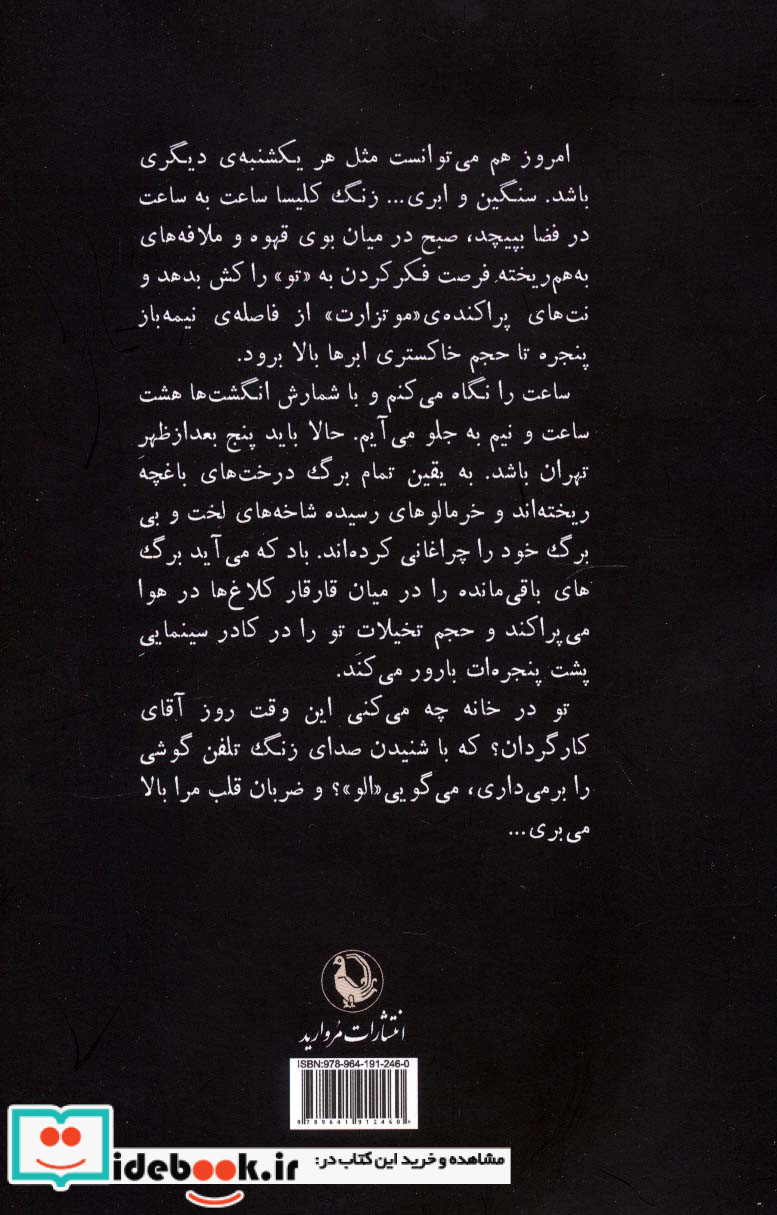 امروز هم می‌توانست مثل هر یکشنبه‌ی دیگری
باشد. سنگین و ابری... زنگ کلیسا ساعت به ساعت
در فضا بپیچد، صبح در میان بوی قهوه و ملافه‌های
به‌هم‌ریخته فرصت فکرکردن به «تو» را کش بدهد و
نت‌های پراکنده‌ی «موتزارت» از فاصله‌ی نیمه‌باز
پنجره تا حجم خاکستری ابرها بالا برود.
ساعت را نگاه می‌کنم و با شمارش انگشت‌ها هشت
ساعت و نیم به جلو می‌آیم. حالا باید پنج بعدازظهرِ
تهران باشد. به یقین تمام برگ درخت‌های باغچه
ریخته‌اند و خرمالوهای رسیده شاخه‌های لخت و بی
برگ خود را چراغانی کرده‌اند. باد که می‌آید برگ
های باقی‌مانده را در میان قارقار کلاغ‌ها در هوا
می‌پراکند و حجم تخیلات تو را در کادر سینماییِ
پشت پنجره‌ات بارور می‌کنَد.
تو در خانه چه می‌کنی این وقت روز آقای
کارگردان؟ که با شنیدن صدای زنگ تلفن گوشی
را برمی‌داری، می‌گویی «الو»؟ و ضربان قلب مرا بالا
می‌بری...
انتشارات مُروارید
ISBN:978-964-191-246-0
9 789641 912460
مشاهده و خرید این کتاب در:
idebook.ir